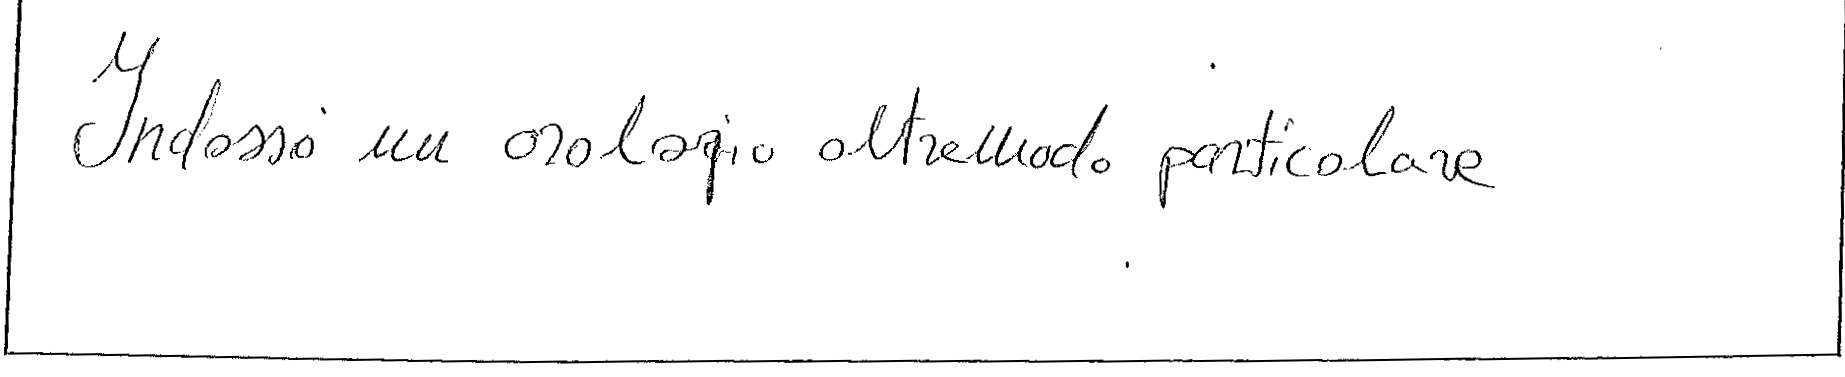 Indossò un orologio oltremodo particolare